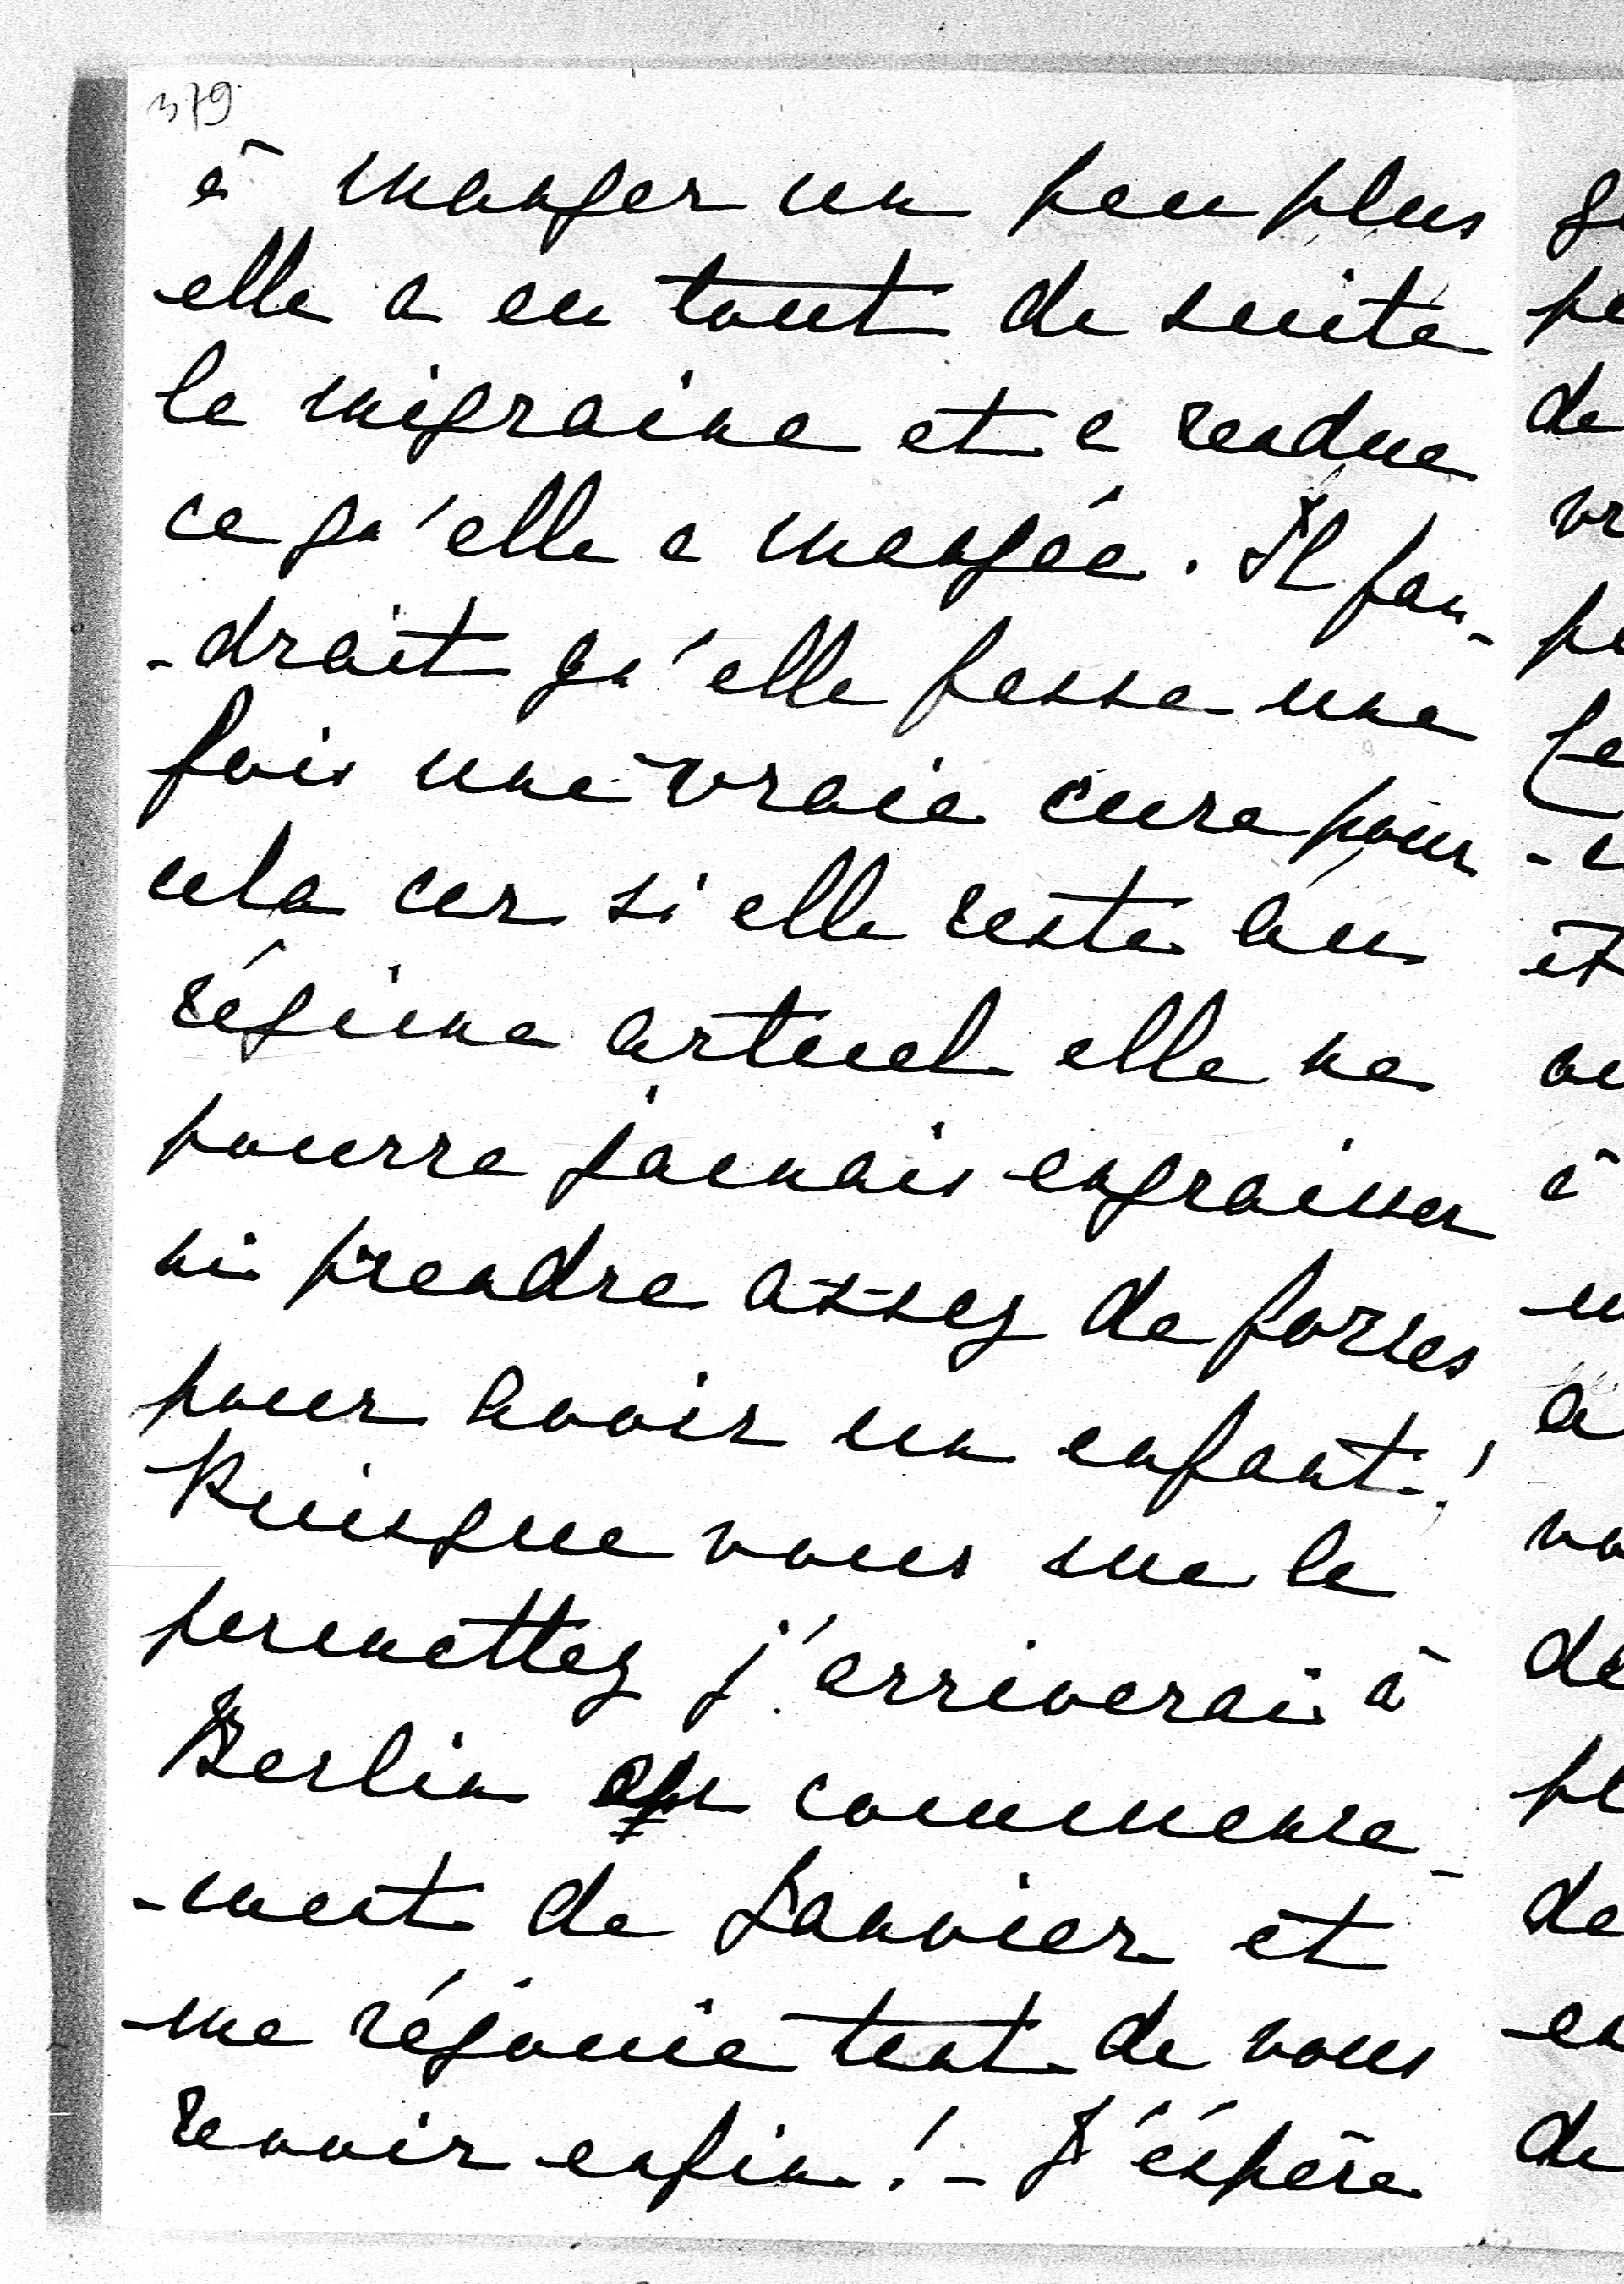 379
à manger un peu plus
elle a eu tout de suite
la migraine et a rendue
ce qu'elle a mangée. Il fau-
-drait qu'elle fasse une
fois une vraie cure pour
cela car si elle reste au
régime actuel elle ne
pourra jamais engraisser
ni prendre assez de forces
pour avoir un enfant!
Puisque vous me le
permettez j'arriverai à
Berlin au commence-
-ment de Janvier et
me réjouie tant de vous
revoir enfin! - J'éspère